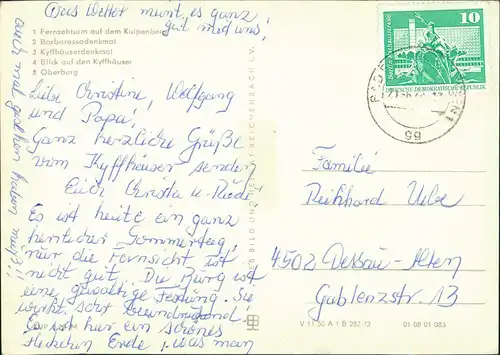 Das Wetter meint es ganz
gut mit uns!
1 Fernsehturm auf dem Kulpenberg
2 Barbarossadenkmal
3 Kyffhäuserdenkmal
4 Blick auf den Kyffhäuser
5 Oberburg
Liebe Christine, Wolfgang
und Papa!
Ganz herzliche Grüße
vom Kyffhäuser senden
Euch Christa u.
Es ist heute ein ganz
herrlicher Sommertag,
nur die Fernsicht ist
nicht gut. Die Burg ist
eine gewaltige Festung. Sie
wirkt sehr beeindruckend!
Es ist hier ein schönes
Fleckchen Erde, was man
auch mal gesehen haben muß!!
BILD UND REICHENBACH I. V.
10
DEUTSCHE DEMOKRATISCHE REPUBLIK
Familie
Reinhard Uebe
4502 Dessau-Alten
Gablenzstr. 13
V 11 50 A 1 B 287/72
01 08 01 083